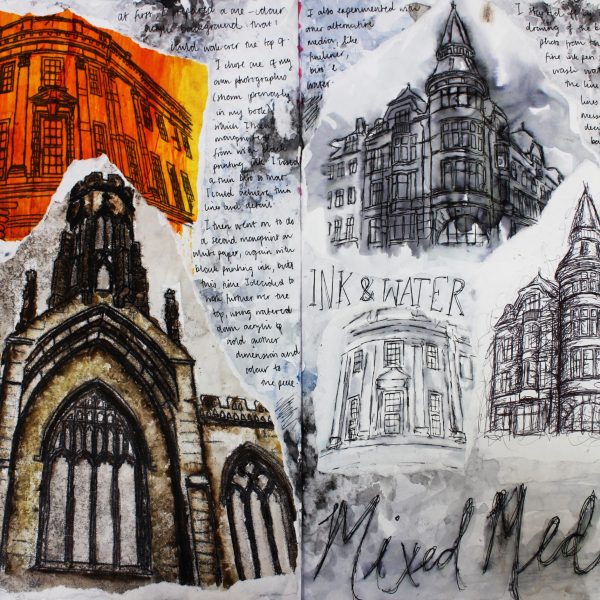 at first
one-colour
background that I
could work over the top of.
I chose one of my
own photographs
(shown previously
in my book)
which I then
monoprinted
from with black
printing ink. I used
a thin
so that
I could achieve thin
lines and detail.
I then went on to do
a second monoprint on
white paper, again with
black printing ink, but
this time I decided to
work further over the
top, using watered
down acrylic to
add another
dimension and
colour to
the piece.
I also experimented with
some alternative
media, like
fineliner,
biro &
water.
drawing of the
photo from
fine ink pen
wash
the line
lines
INK & WATER
Mixed Med